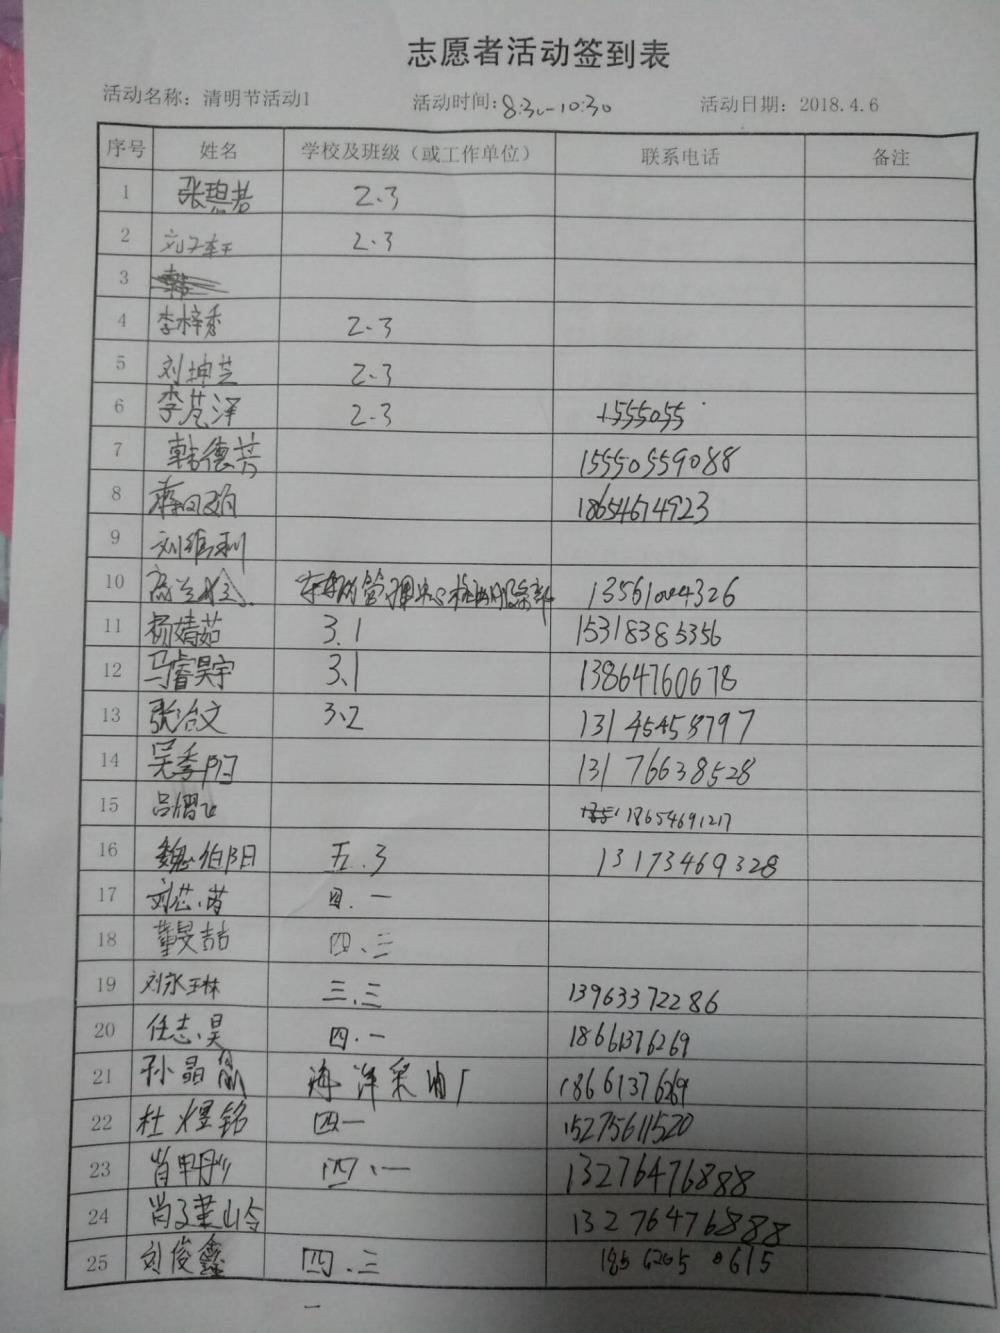 志愿者活动签到表
活动名称：清明节活动1 活动时间：8:30-10:30 活动日期：2018.4.6
序号 姓名 学校及班级（或工作单位） 联系电话 备注
1 张碧若 2.3
2 刘子轩 2.3
3
4 李梓秀 2.3
5 刘坤芸 2.3
6 李芃泽 2.3
7 韩德芳 15550559088
8 18654674923
9 刘维利
10 13561004326
11 杨婧茹 3.1 15318385356
12 马睿昊宇 3.1 13864760678
13 张治文 3.2 13145458797
14 吴季阳 13176638528
15 吕熠飞 18654691217
16 魏伯阳 五.3 13173469328
17 刘芯芮 四.一
18 董旻喆 四.三
19 刘永琳 三.三 13963372286
20 任志昊 四.一 18661376269
21 孙晶 海洋采油厂 18661376269
22 杜煜铭 四一 15275611520
23 肖甲彤 四.一 13276476888
24 13276476888
25 刘俊鑫 四.三 18562050615